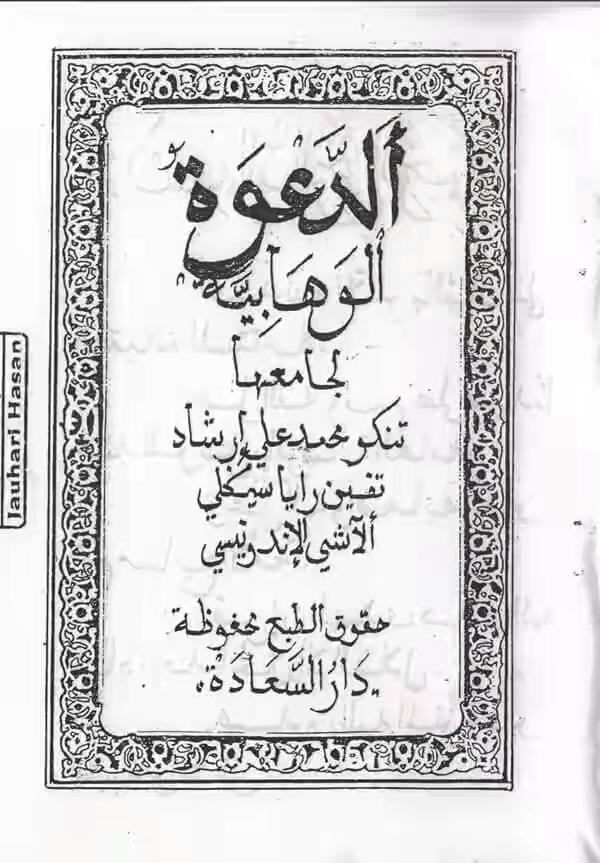 ألدَّعْوَة
الْوَهَابِيَّة
لجامعها
تنكو محمد علي إرشاد
تفين رايا سيكلي
ألآشي الإندونيسي
حقوق الطبع محفوظة
"دَارُ السَّعَادَة"
Jauhari Hasan